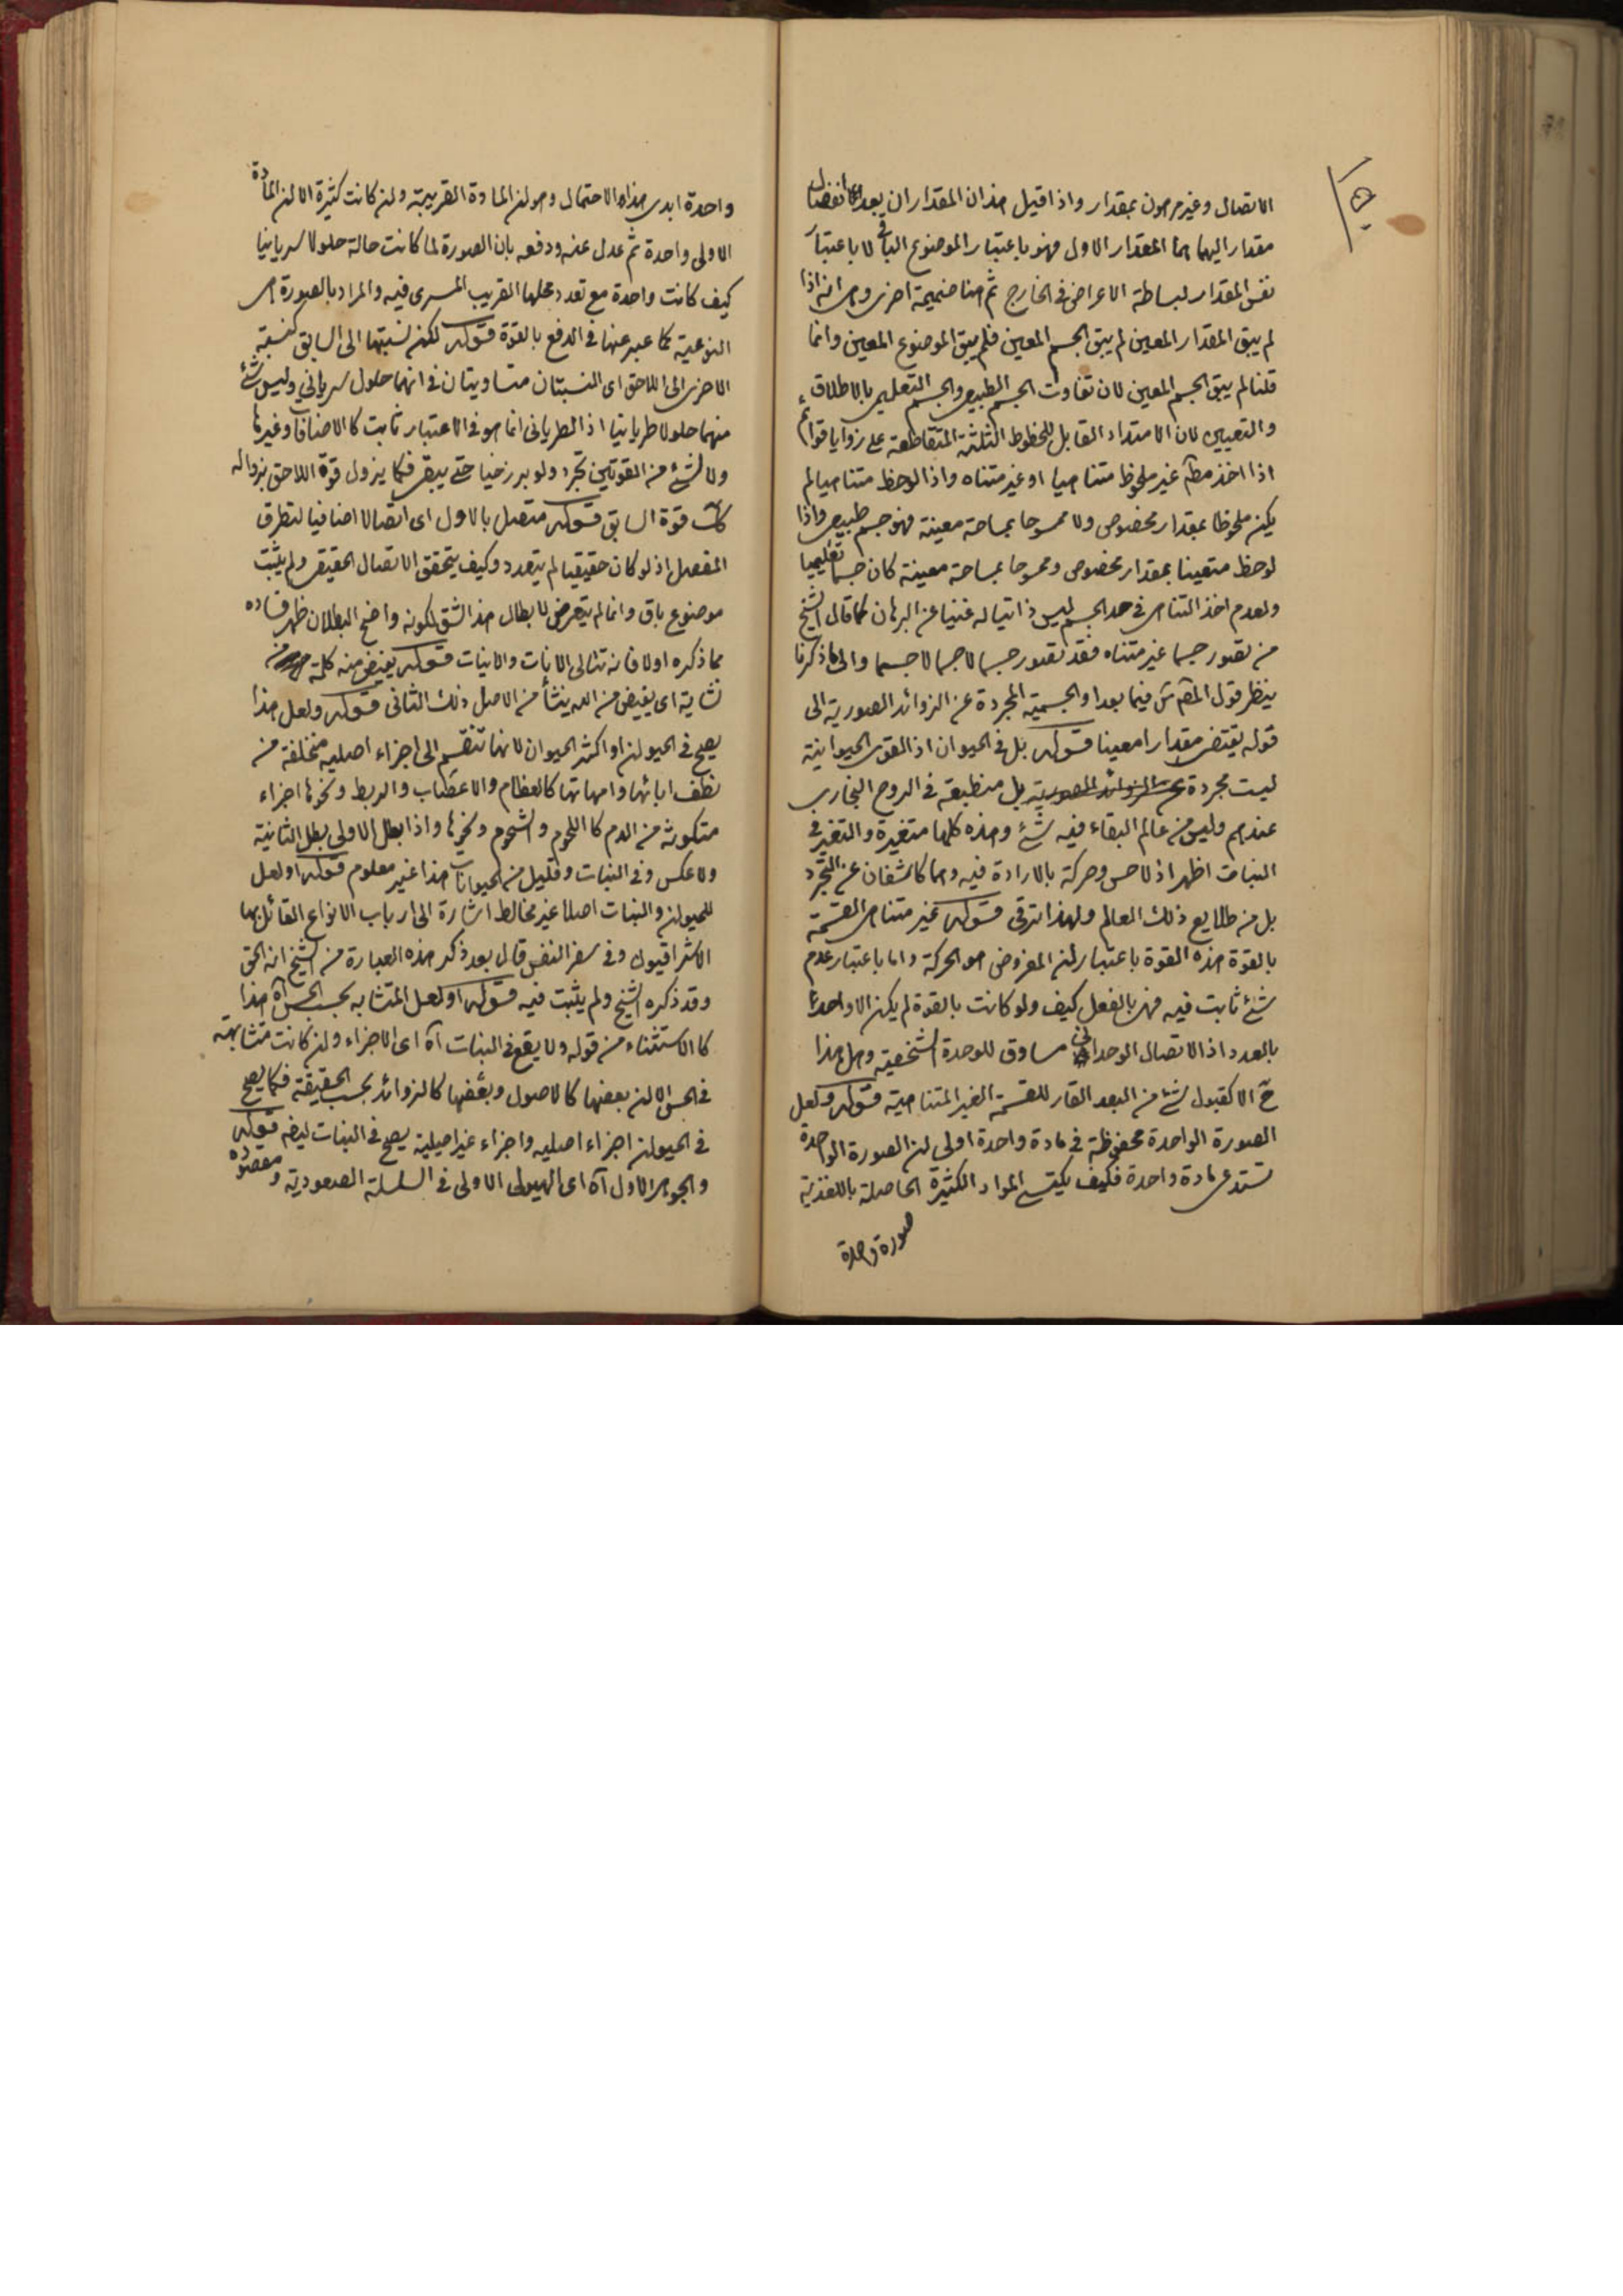 الاتصال وغير مرهون بمقدار واذا قيل هذان المقداران بعد الانفصال
مقدار اليهما هما المقدار الاول فهو باعتبار الموضوع الباقى لا باعتبار
نفس المقدار لبساطة الاعراض فى الخارج ثم هنا ضميمة اخرى وهى انه اذا
لم يبق المقدار المعين لم يبق الجسم المعين فلم يبق الموضوع المعين وانما
قلنا لم يبق الجسم المعين لان تفاوت الجسم الطبيعى والجسم التعليمى بالاطلاق
والتعيين لان الامتداد القابل للخطوط الثلثة المتقاطعة على زوايا قوائم
اذا اخذ مطلقا غير ملحوظ متناهيا او غير متناه واذا لوحظ متناهيا لم
يكن ملحوظا بمقدار مخصوص ولا ممسوحا بمساحة معينة فهو جسم طبيعى واذا
لوحظ متعينا بمقدار مخصوص وممسوحا بمساحة معينة كان جسما تعليميا
ولعدم اخذ التناهى فى حد الجسم ليس ذاتيا له غنيا عن البرهان كما قال الشيخ
من تصور جسما غير متناه فقد تصور جسما لا جسما لا جسما والى ما ذكرنا
ينظر قول المصنف فيما بعد او الجسمية المجردة عن الزوائد الصورية الى
قوله يقتضى مقدارا معينا قوله بل فى الحيوان اذ القوى الحيوانية
ليست مجردة بل منطبعة فى الروح البخارى
عندهم وليس من عالم البقاء فيه شئ وهذه كلها متغيرة والتغير فى
النبات اظهر اذ لا حس وحركة بالارادة فيه وهما كاشفان عن التجرد
بل من طلايع ذلك العالم ولهذا ترقى قوله غير متناهى القسمة
بالقوة هذه القوة باعتبار ان المفروض هو الحركة واما باعتبار عدم
شئ ثابت فيه فهى بالفعل كيف ولو كانت بالقوة لم يكن الا واحدا
بالعدد اذ الاتصال الوحدانى مساوق للوحدة الشخصية وهل هذا
ح الا كقبول شئ من البعد القار للقسمة الغير المتناهية قوله ولعل
الصورة الواحدة محفوظة فى مادة واحدة اولى ان الصورة الواحدة
تستدعى مادة واحدة فكيف يكتسى المواد الكثيرة الحاصلة بالتغذية
صورة واحدة
واحدة ابدى هذا الاحتمال وهو ان المادة القريبة وان كانت كثيرة الا ان المادة
الاولى واحدة ثم عدل عنه ودفعه بان الصورة لما كانت حالة حلولا سريانيا
كيف كانت واحدة مع تعدد محلها القريب المسرى فيه والمراد بالصورة هى
النوعية كما عبر عنها فى الدفع بالقوة قوله لكن نسبتها الى السابق كنسبة
الاخرى الى اللاحق اى النسبتان متساويتان فى انهما حلول سريانى وليس شئ
منهما حلولا طريانيا اذ الطريانى انما هو فى الاعتبار ثابت كالاضافات وغيرها
ولا شئ من القوتين تجرد ولو برزخيا حتى يبقى فكما يزول قوة اللاحق بزواله
كك قوة السابق قوله متصل بالاول اى اتصالا اضافيا لتطرق
المفصل اذ لو كان حقيقيا لم يتعدد وكيف يتحقق الاتصال الحقيقى ولم يثبت
موضوع باق وانما لم يتعرض لابطال هذا الشق لكونه واضح البطلان ظهر فساده
مما ذكره اولا فانه تتالى الانات والانيات قوله يفيض منه كلمة من
نشاية اى يفيض من الله ينشأ من الاصل ذلك الثانى قوله ولعل هذا
يصح فى الحيوان او اكثر الحيوان لانها تنقسم الى اجزاء اصلية متخلفة من
نطف ابائها وامهاتها كالعظام والاعصاب والربط ونحوها اجزاء
متكونة من الدم كاللحوم والشحوم ونحوها واذا بطل الاولى بطل الثانية
ولا عكس وفى النبات وقليل من الحيوانات هذا غير معلوم قوله او لعل
للحيوان والنبات اصلا غير مخالط اشارة الى ارباب الانواع القائل بها
الاشراقيون وفى سفر النفس قال بعد ذكر هذه العبارة من الشيخ انه الحق
وقد ذكره الشيخ ولم يثبت فيه قوله او لعل المتشابه بحسب الحس آه هذا
كالاستثناء من قوله ولا يقع فى النبات آه اى الاجزاء وان كانت متشابهة
فى الحس الا ان بعضها كالاصول وبعضها كالزوائد بحسب الحقيقة فكما يصح
فى الحيوان اجزاء اصلية واجزاء غير اصيلية يصح فى النبات ايضا قوله
والجوهر الاول آه اى الهيولى الاولى فى السلسلة الصعودية ومقصوده